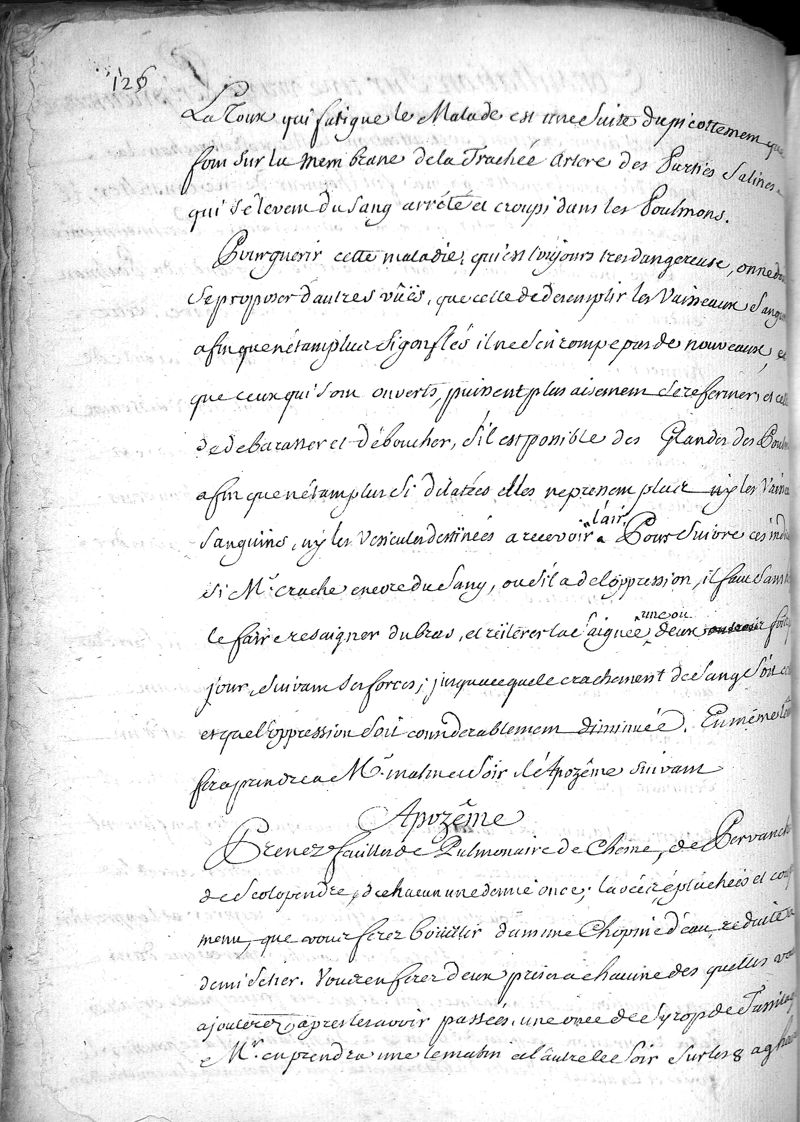 126
La Toux qui fatigue le Malade est une suite du picottement que
font sur la membrane de la Trachée Artere des Parties Salines
qui s'élevent du sang arrété et croupi dans les Poulmons.
Pour guerir cette maladie, qui est toujours tres dangereuse, on ne doit
se proposer d'autres vûës, que celle de desemplir les Vaisseaux Sanguins
afin que n'étant plus si gonflés il ne s'en rompe pas de nouveaux, et
que ceux qui sont ouverts, puissent plus aisement se refermer, et celle
de debarasser et déboucher, s'il est possible des Glandes des Poulm
afin que n'étant plus si dilatées elles ne pressent plus ny les Vaiss
Sanguins, ny les vesicules destinées a recevoir l'air. Pour suivre ces indi
si Mr. crache encore du Sang, ou s'il a de l'oppression, il faut sans
le faire resaigner du bras, et réïterer la saignée, une ou deux fois
jour, suivant ses forces, jusqu'a ce que le crachement de sang soit
et que l'oppression soit considerablement diminuée. En même tems
fera prendre a Mr. matin et soir l'Apozême suivant
Apozême
Prenez feuilles de Pulmonaire de Chesne, de Pervanche
de Scolopendre, de chacun une demie once; lavées, épluchées et coup
menu, que vous ferez boüillir dans une Chopine d'eau reduite a
demi setier. Vous en ferez deux prises a chacune des quelles vous
ajouterez, apres les avoir passées, une once de Syrop de Tussilage
Mr. en prendra une le matin et l'autre le soir sur les 8 a 9 heures